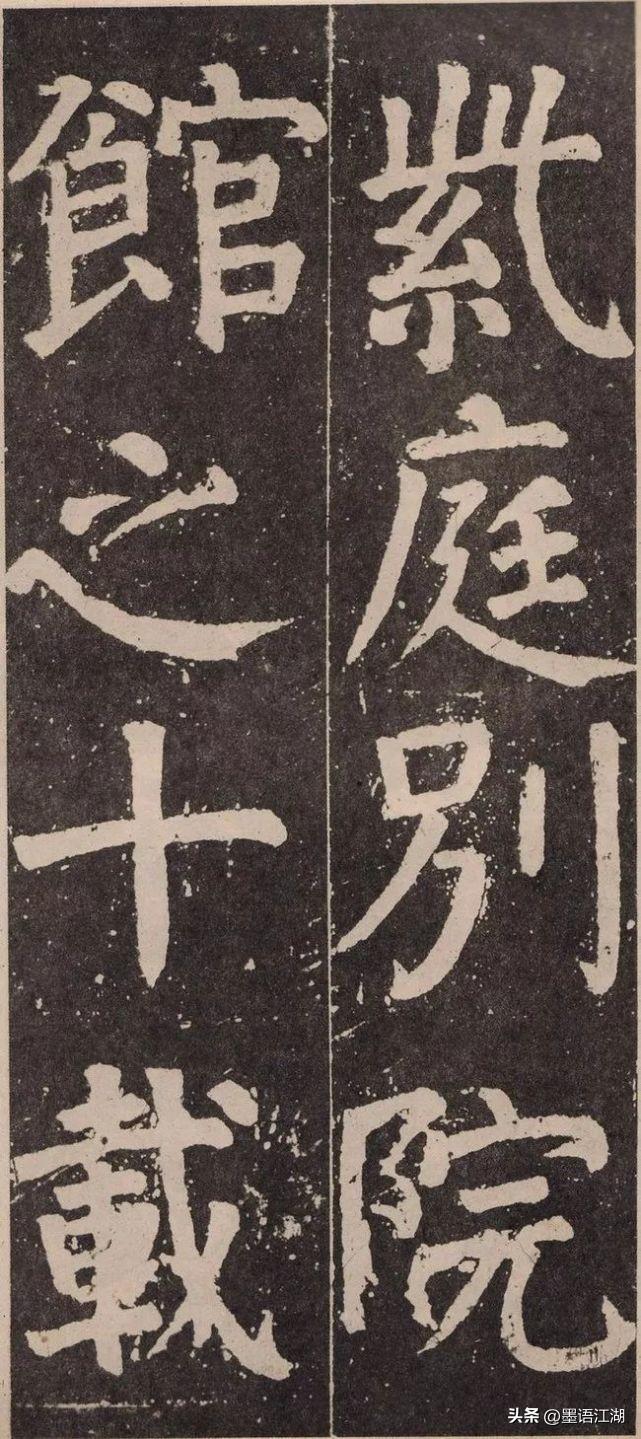 紫庭別院
館之十載
头条 @墨语江湖